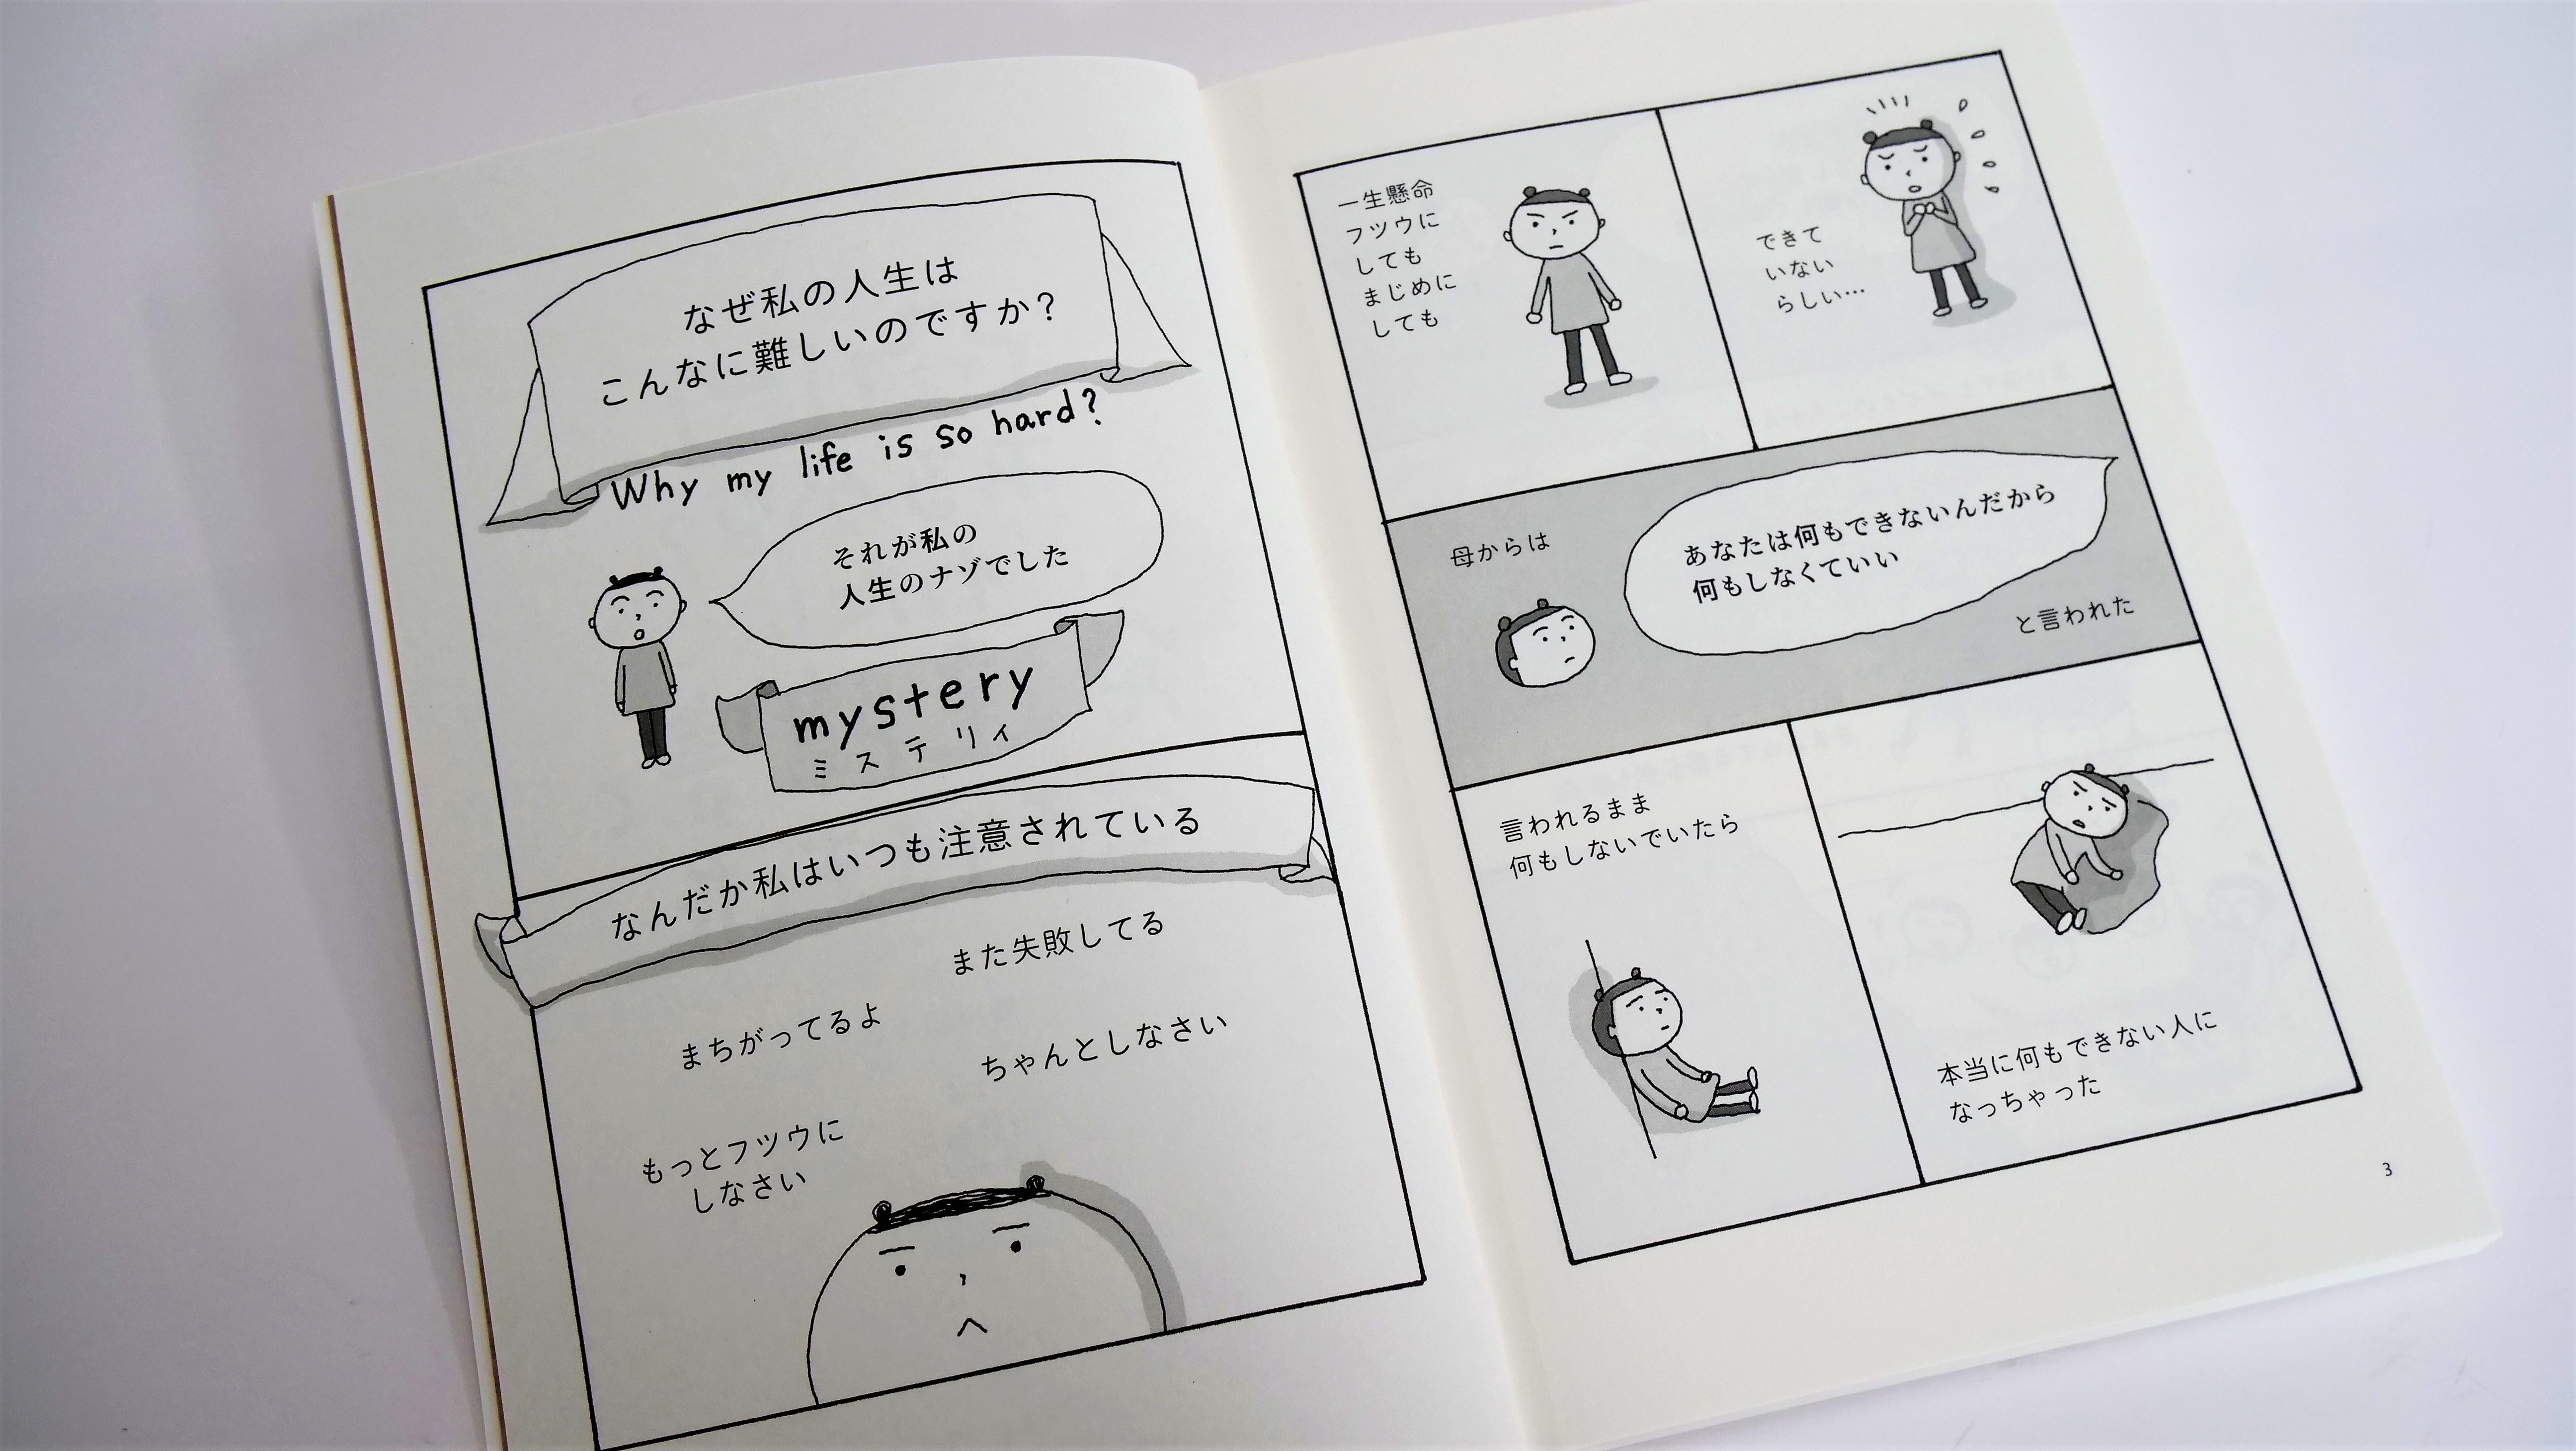 なぜ私の人生は
こんなに難しいのですか?
Why my life is so hard?
それが私の
人生のナゾでした
mystery
ミステリィ
なんだか私はいつも注意されている
また失敗してる
まちがってるよ
ちゃんとしなさい
もっとフツウに
しなさい
一生懸命
フツウに
しても
まじめに
しても
できて
いない
らしい…
母からは
あなたは何もできないんだから
何もしなくていい
と言われた
言われるまま
何もしないでいたら
本当に何もできない人に
なっちゃった
3